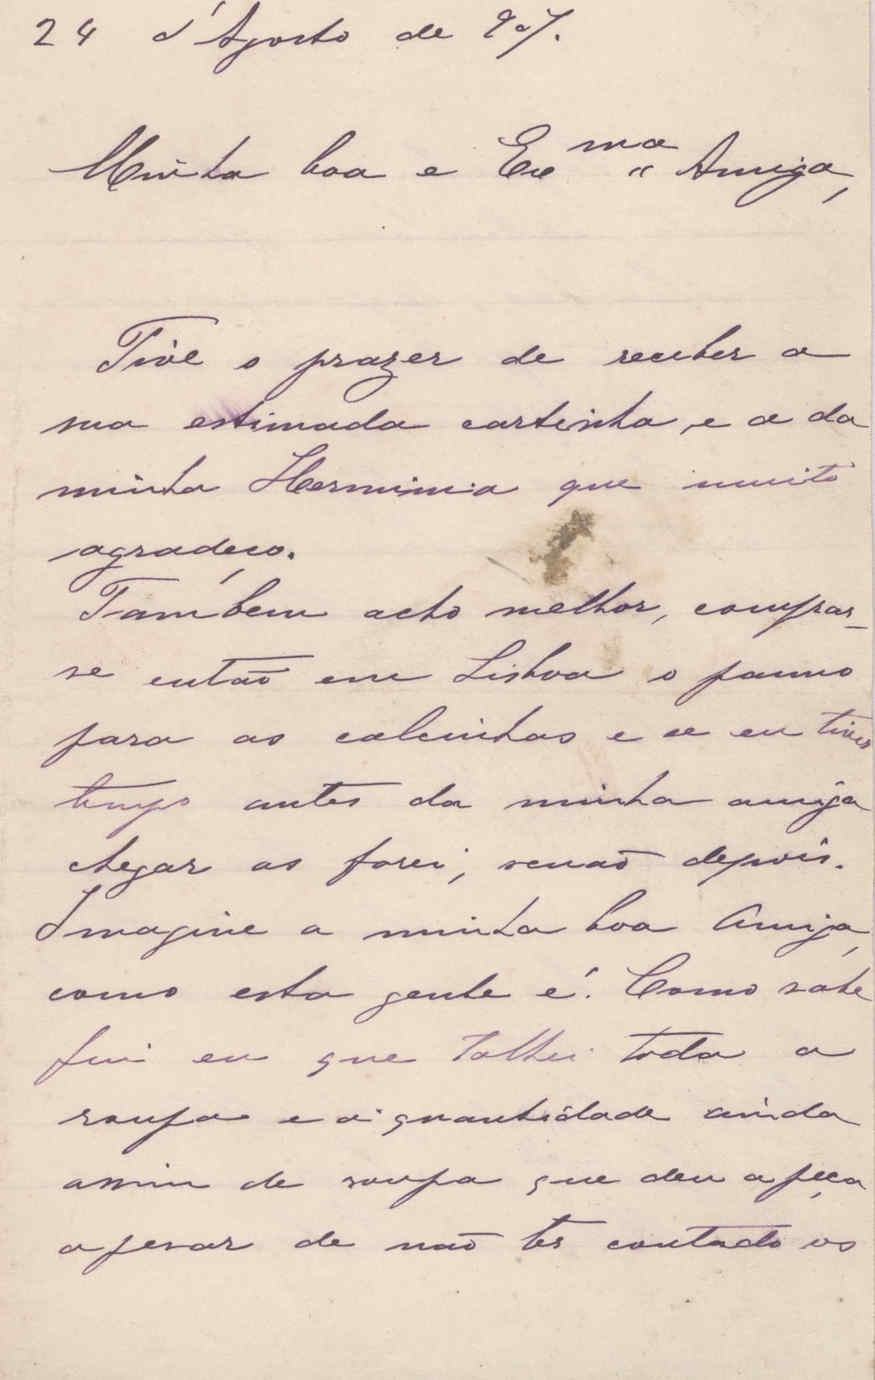 24 d'Agosto de 907.
Minha boa e Exma Amiga,
Tive o prazer de receber a
sua estimada cartinha, e a da
minha Herminia que muito
agradeço.
Também acho melhor, comprar-
se então em Lisboa o panno
para as calcinhas e se eu tiver
tempo antes da minha amiga
chegar as farei, senão depois.
Imagine a minha boa Amiga,
como esta gente é. Como sabe
fui eu que talhei toda a
roupa e a quantidade ainda
assim de roupa que deu a peça
apesar de não ter contado os